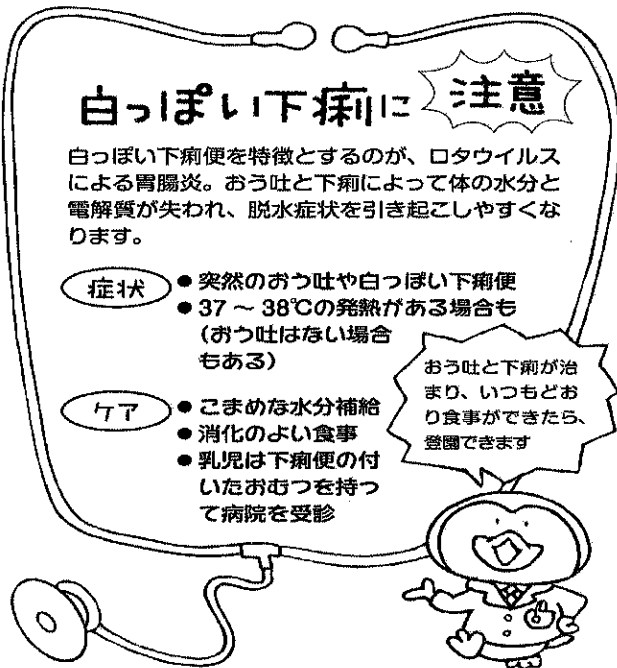 白っぽい下痢に 注意
白っぽい下痢便を特徴とするのが、ロタウイルス
による胃腸炎。おう吐と下痢によって体の水分と
電解質が失われ、脱水症状を引き起こしやすくな
ります。
症状
●突然のおう吐や白っぽい下痢便
●37〜38℃の発熱がある場合も
(おう吐はない場合
もある)
ケア
●こまめな水分補給
●消化のよい食事
●乳児は下痢便の付
いたおむつを持っ
て病院を受診
おう吐と下痢が治
まり、いつもどお
り食事ができたら、
登園できます